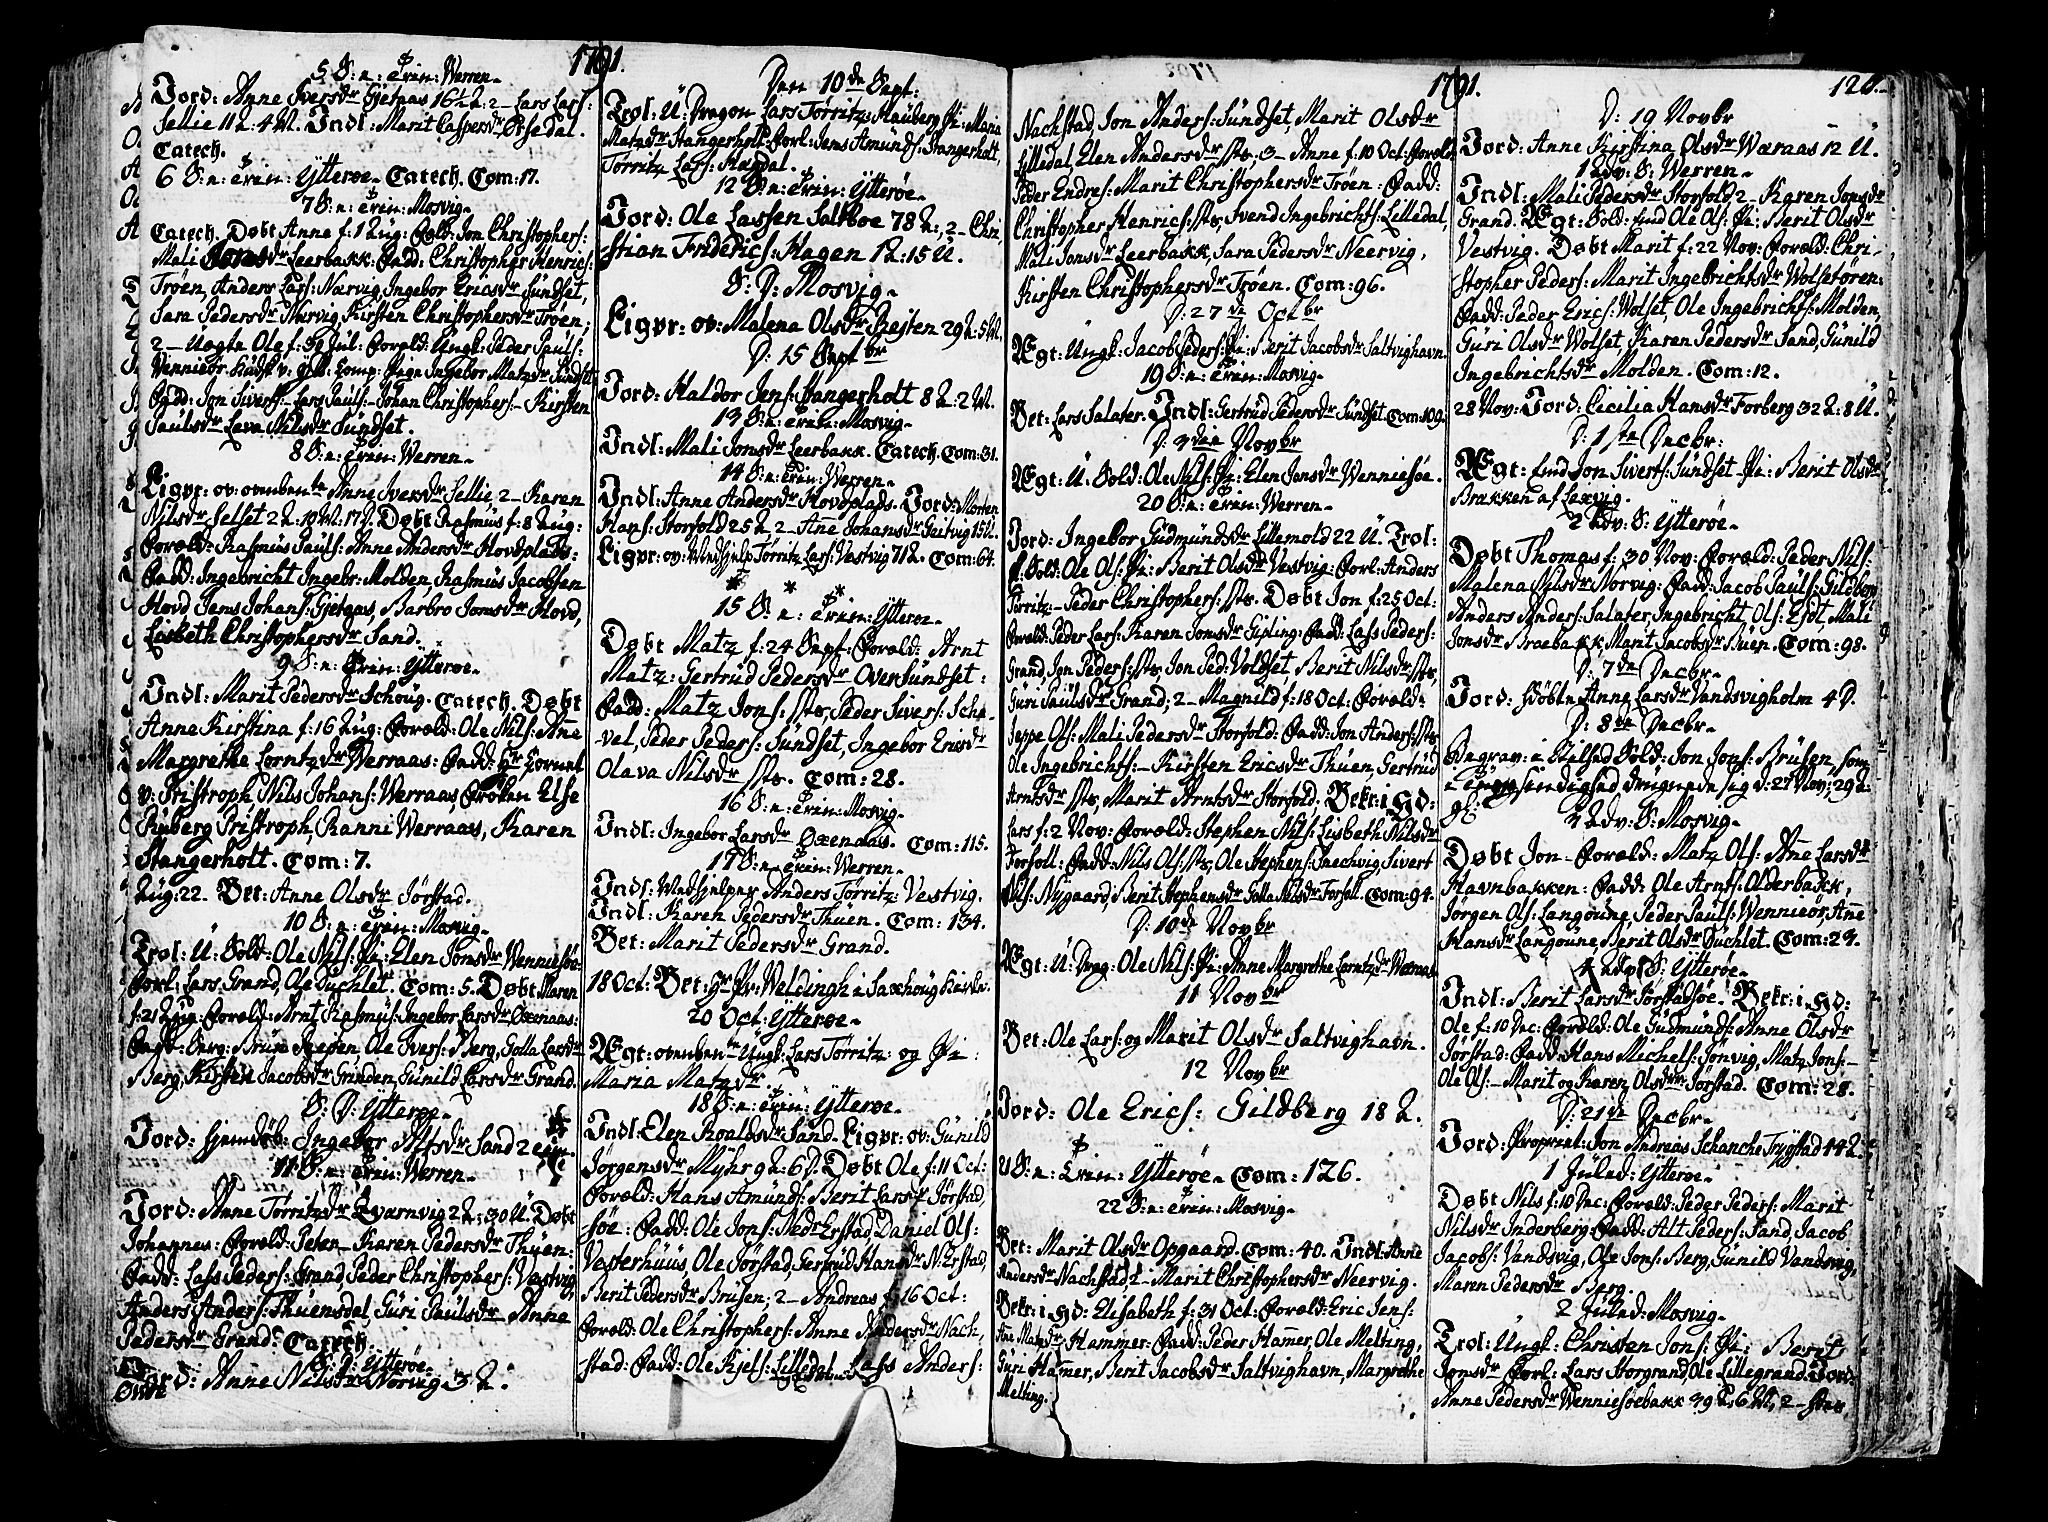 1791.
5 S: n: Trin: Werren-
Jord: Anne Iversdr Gjetaas 16½ U: 2- Lars Lars:
Sellie 11 U: 4 M. Indl: Marit Caspersdr
Catech.
6 S: n: Trin: Ytterøe- Catech. Com: 17.
7 S: n: Trin: Mosvig-
Catech. Døbt Anne f: 1 Aug: Foræld: Jon Christophers:
Mali Jonsdr Leerbakk: Fadd: Christopher Henrics:
Trøen, Anders Lars: Nærvig, Ingebor Ericsdr Sundset,
Sara Pedersdr Nærvig, Kirsten Christophersdr Trøen;
2- Uægte Ole f: Jul: Foræld: Ungk: Peder Pauls:
Wenniesör Comp: Pigen Ingebor Matzdr Sundset
Fadd: Jon Sivers:- Lars Pauls:- Johan Christophers:- Kirsten
Paulsdr Lava Nilsdr Sundset.
8 S: n: Trin: Werren-
Ligpr: ov: ovenbente Anne Iversdr Sellie, 2- Karen
Nilsdr Selset 2 A: 10 M: 17 D. Døbt Rasmus f: 8 Aug:
Foræld: Rasmus Pauls: Anne Andersdr Hovdplads:
Fadd: Ingebricht Ingebr: Molden, Rasmus Jacobsen
Hovd Jens Johans: Gjetaas, Barbro Jonsdr Hovd,
Lisbeth Christophersdr Sand.
9 S: n: Trin: Ytterøe-
Indl: Marit Pedersdr Schoug. Catech. Døbt
Anne Kirstina f: 16 Aug: Foræld: Ole Nils: Anne
Margrethe Lorntzdr Werraas: Fadd: Hr Cornet
v: Pristroph, Nils Johans: Werraas, Frøken Else
Ruberg Pristroph, Ranni Werraas, Karen
Stangerholt. Com: 7.
Aug: 22. Bet: Anne Olsdr Jørstad.
10 S: n: Trin: Mosvig-
Trol: U: Sold: Ole Nils: Pi: Elen Jonsdr Wenniesøe
Forl: Lars Grand, Ole Duchlet. Com: 5. Døbt Maren
f: 21 Aug: Foræld: Arnt Rasmus: Ingebor Larsdr Oxenaas:
Fadd: Serg: Bruse Rejsen, Ole Ivers: Berg, Golla Larsdr
Berg, Kirsten Jacobsdr Grinden, Gunild Larsdr Grand.
S: D: Ytterøe-
Jord: hjemdøb: Ingebor Alfsdr Sand 2
11 S: n: Trin: Werren-
Jord: Anne Tørritzdr Qvarnvig 2 A: 30 U. Døbt
Johannes: Foræld: Peter- Karen Pedersdr Thuen:
Fadd: Lars Peders: Grand, Peder Christophers: Vestvig
Anders Anders: Thuensdal, Guri Paulsdr- Anne
Pedersdr Grand: Catech.
S: D: Ytterøe-
Jord: Anne Nilsdr Norvig 3 A.
Den 10de Sept:
Trol: U: Dragon Lars Tørritz: Hauberg Pi: Maria
Matzdr Stangerholt: Forl: Jens Amunds: Stangerholt,
Tørritz Lars: Hagdal.
12 S: n: Trin: Ytterøe-
Jord: Ole Lassen Saltboe 78 A:, 2- Chri,
stian Friderics: Hagen 1 A: 15 U.
S: D: Mosvig-
Ligpr: ov: Malena Olsdr Rejten 29 A: 5 M.
D: 15 Septbr
Jord: Haldor Jens: Stangerholt 8 A: 2 M.
13 S: n: Trin: Mosvig-
Indl: Mali Jonsdr Leerbakk. Catech. Com: 31.
14 S: n: Trin: Werren-
Indl: Anne Andersdr Hovdplads. Jord: Morten
Hans: Storfold 25 A 2- Anne Johansdr Gaitvig 15 U.
Ligpr: ov: Medhjelp: Tørritz Lars: Vestvig 71 A. Com: 64.
* * *
15 S: n: Trin: Ytterøe-
Døbt Matz f: 24 Sept: Foræld: Arnt
Matz: Gertrud Pedersdr OverSundset:
Fadd: Matz Jons: sts, Peder Sivers: Scha-
vel, Peder Peders: Sundset, Ingebor Ericsdr
Olava Nilsdr sts. Com: 28.
16 S: n: Trin: Mosvig-
Indl: Ingebor Larsdr Oxenaas. Com: 115.
17 S: n: Trin: Werren-
Indl: Medhjelper Anders Tørritz: Vestvig.
Indl: Karen Pedersdr Thuen. Com: 134.
Bet: Marit Pedersdr Grand.
18 Oct: Bet: Hr Pr: Weldingh i Saxhoug Kirke.
20 Oct: Ytterøe-
Ægt: ovenbente Ungk: Lars Tørritz: og Pi:
Maria Matzdr.
18 S: n: Trin: Ytterøe-
Indl: Elen Roaldsdr Sand. Ligpr: ov: Gunild
Jørgensdr Myhr 9 A: 6 D. Døbt Ole f: 11 Oct:
Foræld: Hans Amunds: Berit Larsdr Jørstad,
søe: Fadd: Ole Jons: NedrErstad, Daniel Ols:
Vesterhuus, Ole Jørstad, Gertrud Hansdr N: Erstad,
Berit Pedersdr Brusen; 2- Andreas f: 16 Oct:
Foræld: Ole Christophers: Anne Andersdr Nach,
stad: Fadd: Ole Kjels: Lilledal- Lars Anders:
1791.
126.
Nachstad, Jon Anders: Sundset, Marit Olsdr
Lilledal, Elen Andersdr sts, 3- Anne f: 10 Oct: Foræld:
Peder Endres: Marit Christophersdr Trøen: Fadd:
Christopher Henrics: sts, Svend Ingebrichts: Lilledal,
Mali Jonsdr Leerbakk, Sara Pedersdr Neervig,
Kirsten Christophersdr Trøen. Com: 96.
D: 27de Octbr
Ægt: Ungk: Jacob Peders: Pi: Berit Jacobsdr Saltvighavn.
19 S: n: Trin: Mosvig-
Bet: Lars Salater. Indl: Gertrud Pedersdr Sundset. Com: 109.
D: 3die Novbr
Ægt: U: Sold: Ole Nils: Pi: Elen Jonsdr Wenniesøe.
20 S: n: Trin: Werren-
Jord: Ingebor Gudmundsdr Lillemold 22 U. Trol:
Sold: Ole Ols: Pi: Berit Olsdr Vestvig: Forl: Anders
Tørritz:- Peder Christophers: sts. Døbt Jon f: 25 Oct:
Foræld: Peder Lars: Karen Jonsdr Gipling: Fadd: Lars Peders:
Grand, Jon Peders: sts, Jon Ped: Voldset, Berit Nilsdr sts,
Guri Paulsdr Grand; 2- Magnild f: 18 Oct: Foræld:
Jeppe Ols: Mali Pedersdr Storfold: Fadd: Jon Anders: sts,
Ole Ingebrichts:- Kirsten Ericsdr Thuen, Gertrud
Arntsdr sts, Marit Arntsdr Storfold. Bekr: i HD:
Lars f: 2 Nov: Foræld: Stephen Nils: Lisbeth Nilsdr
Forfoll: Fadd: Nils Ols: sts, Ole Stephens: Saechvig, Sivert
Nils: Nygaard, Berit Stephensdr Golla Nilsdr Forfoll. Com: 94.
D: 10de Novbr
Ægt: U: Drag: Ole Nils: Pi: Anne Margrethe Lorntzdr Werraas.
11 Novbr
Bet: Ole Lars: og Marit Olsdr Saltvighavn.
12 Novbr
Jord: Ole Erics: Gildberg 18 A.
21 S: n: Trin: Ytterøe- Com: 126.
22 S: n: Trin: Mosvig-
Bet: Marit Olsdr Opgaard. Com: 40. Indl: Anne
Andersdr Nachstad, 2- Marit Christophersdr Neervig.
Bekr: i HD: Elisabeth f: 31 Oct: Foræld: Eric Jens:
Ane Matzdr Hammer: Fadd: Peder Hamer, Ole Melting,
Guri Hamer, Berit Jacobsdr Saltvighavn, Margrethe
Melting.
D: 19 Novbr
Jord: Anne Kirstina Olsdr Wæraas 12 U.
1 Adv: S: Werren-
Indl: Mali Pedersdr Storfold, 2- Karen Jonsdr
Grand. Ægt: Sold: Emd Ole Ols: Pi: Berit Olsdr
Vestvig. Døbt Marit f: 22 Nov: Foræld: Chri-
stopher Peders: Marit Ingebrichtsdr Wolsetøren:
Fadd: Peder Erics: Wolset, Ole Ingebrichts: Molden,
Guri Olsdr Wolset, Karen Pedersdr Sand, Gunild
Ingebrichtsdr Molden. Com: 12.
28 Nov: Jord: Cecilia Hansdr Forberg 32 A: 8 U.
D: 1ste Decbr:
Ægt: Emd Jon Siverts: Sundset Pi: Berit Olsdr
Brakken af Lexvig.
2 Adv: S: Ytterøe-
Døbt Thomas f: 30 Nov: Foræld: Peder Nils:
Malena Nilsdr Norvig: Fadd: Jacob Pauls: Gildberg
Anders Anders: Salater, Ingebricht Ols: Mali
Jonsdr Braebakk, Marit Jacobsdr Buen. Com: 98.
D: 7de Decbr-
Jord: Døbte Anne Larsdr Vandsvigholm 4 D.
D: 8de Decbr-
Begrav: i Stilhed Sold: Jon Jons: Brusen, som
i druknede sig d: 27 Nov: 29 A:
gl:
3 Adv: S: Mosvig-
Døbt Jon- Foræld: Matz Ols: Ane Larsdr
Havnbakken: Fadd: Ole Arnts: Olderbakk,
Jørgen Ols: Langoune, Peder Pauls: Wennieör, Ane
Hansdr Langoune Berit Olsdr Duchlet. Com: 23.
4 Adv: S: Ytterøe-
Indl: Berit Larsdr Jørstadsøe. Bekr: i HD:
Ole f: 10 Dec: Foræld: Ole Gudmunds: Anne Olsdr
Jørstad: Fadd: Hans Michels: Jonvig, Matz Jons:-
Ole Ols:- Marit og Karen Olsdr Jørstad. Com: 28.
D: 21de Decbr-
Jord: Proprietr: Jon Andreas Schanche Trygstad 44 A.
1 Juled: Ytterøe-
Døbt Nils f: 10 Dec: Foræld: Peder Peders: Marit
Nilsdr Inderberg: Fadd: Alt Peders: Sand, Jacob
Jacobs: Vandsvig, Ole Jons: Berg, Gunild Vandsvig,
Maren Pedersdr Berg.
2 Juled: Mosvig-
Trol: Ungk: Christen Jons: Pi: Berit
Jonsdr Forl: Lars Storgrand, Ole Lillegrand. Jord:
Anne Pedersdr Wenniesøebakk 39 A, 6 M, 2-